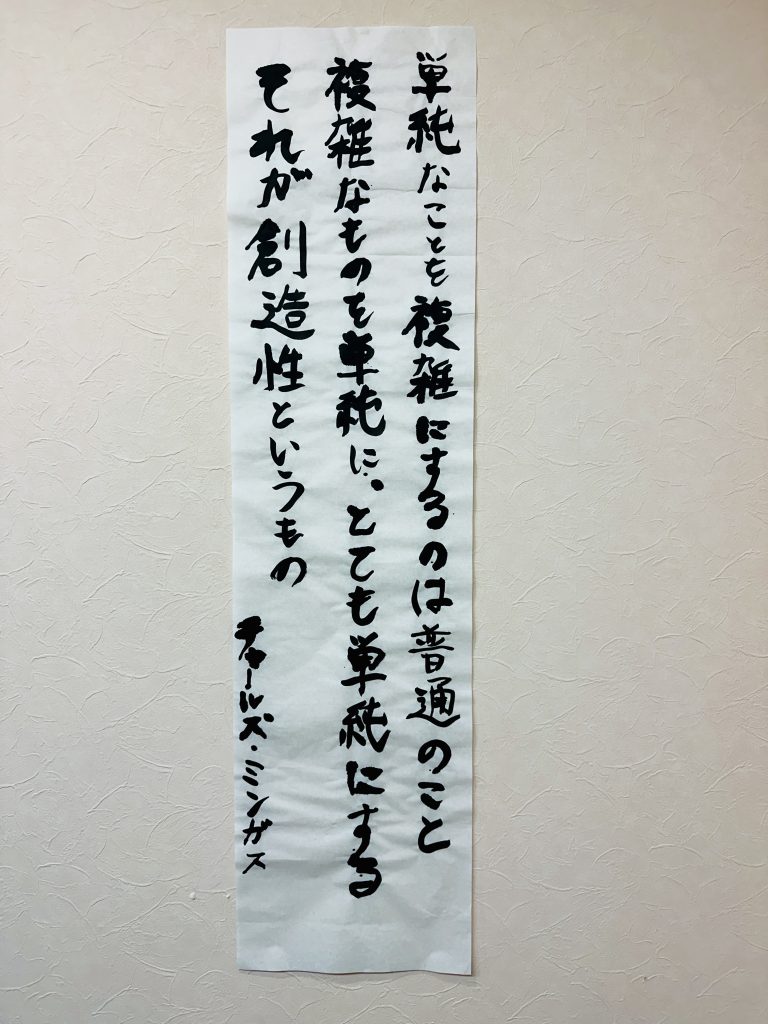 単純なことを複雑にするのは普通のこと
複雑なものを単純に、とても単純にする
それが創造性というもの
チャールズ・ミンガス